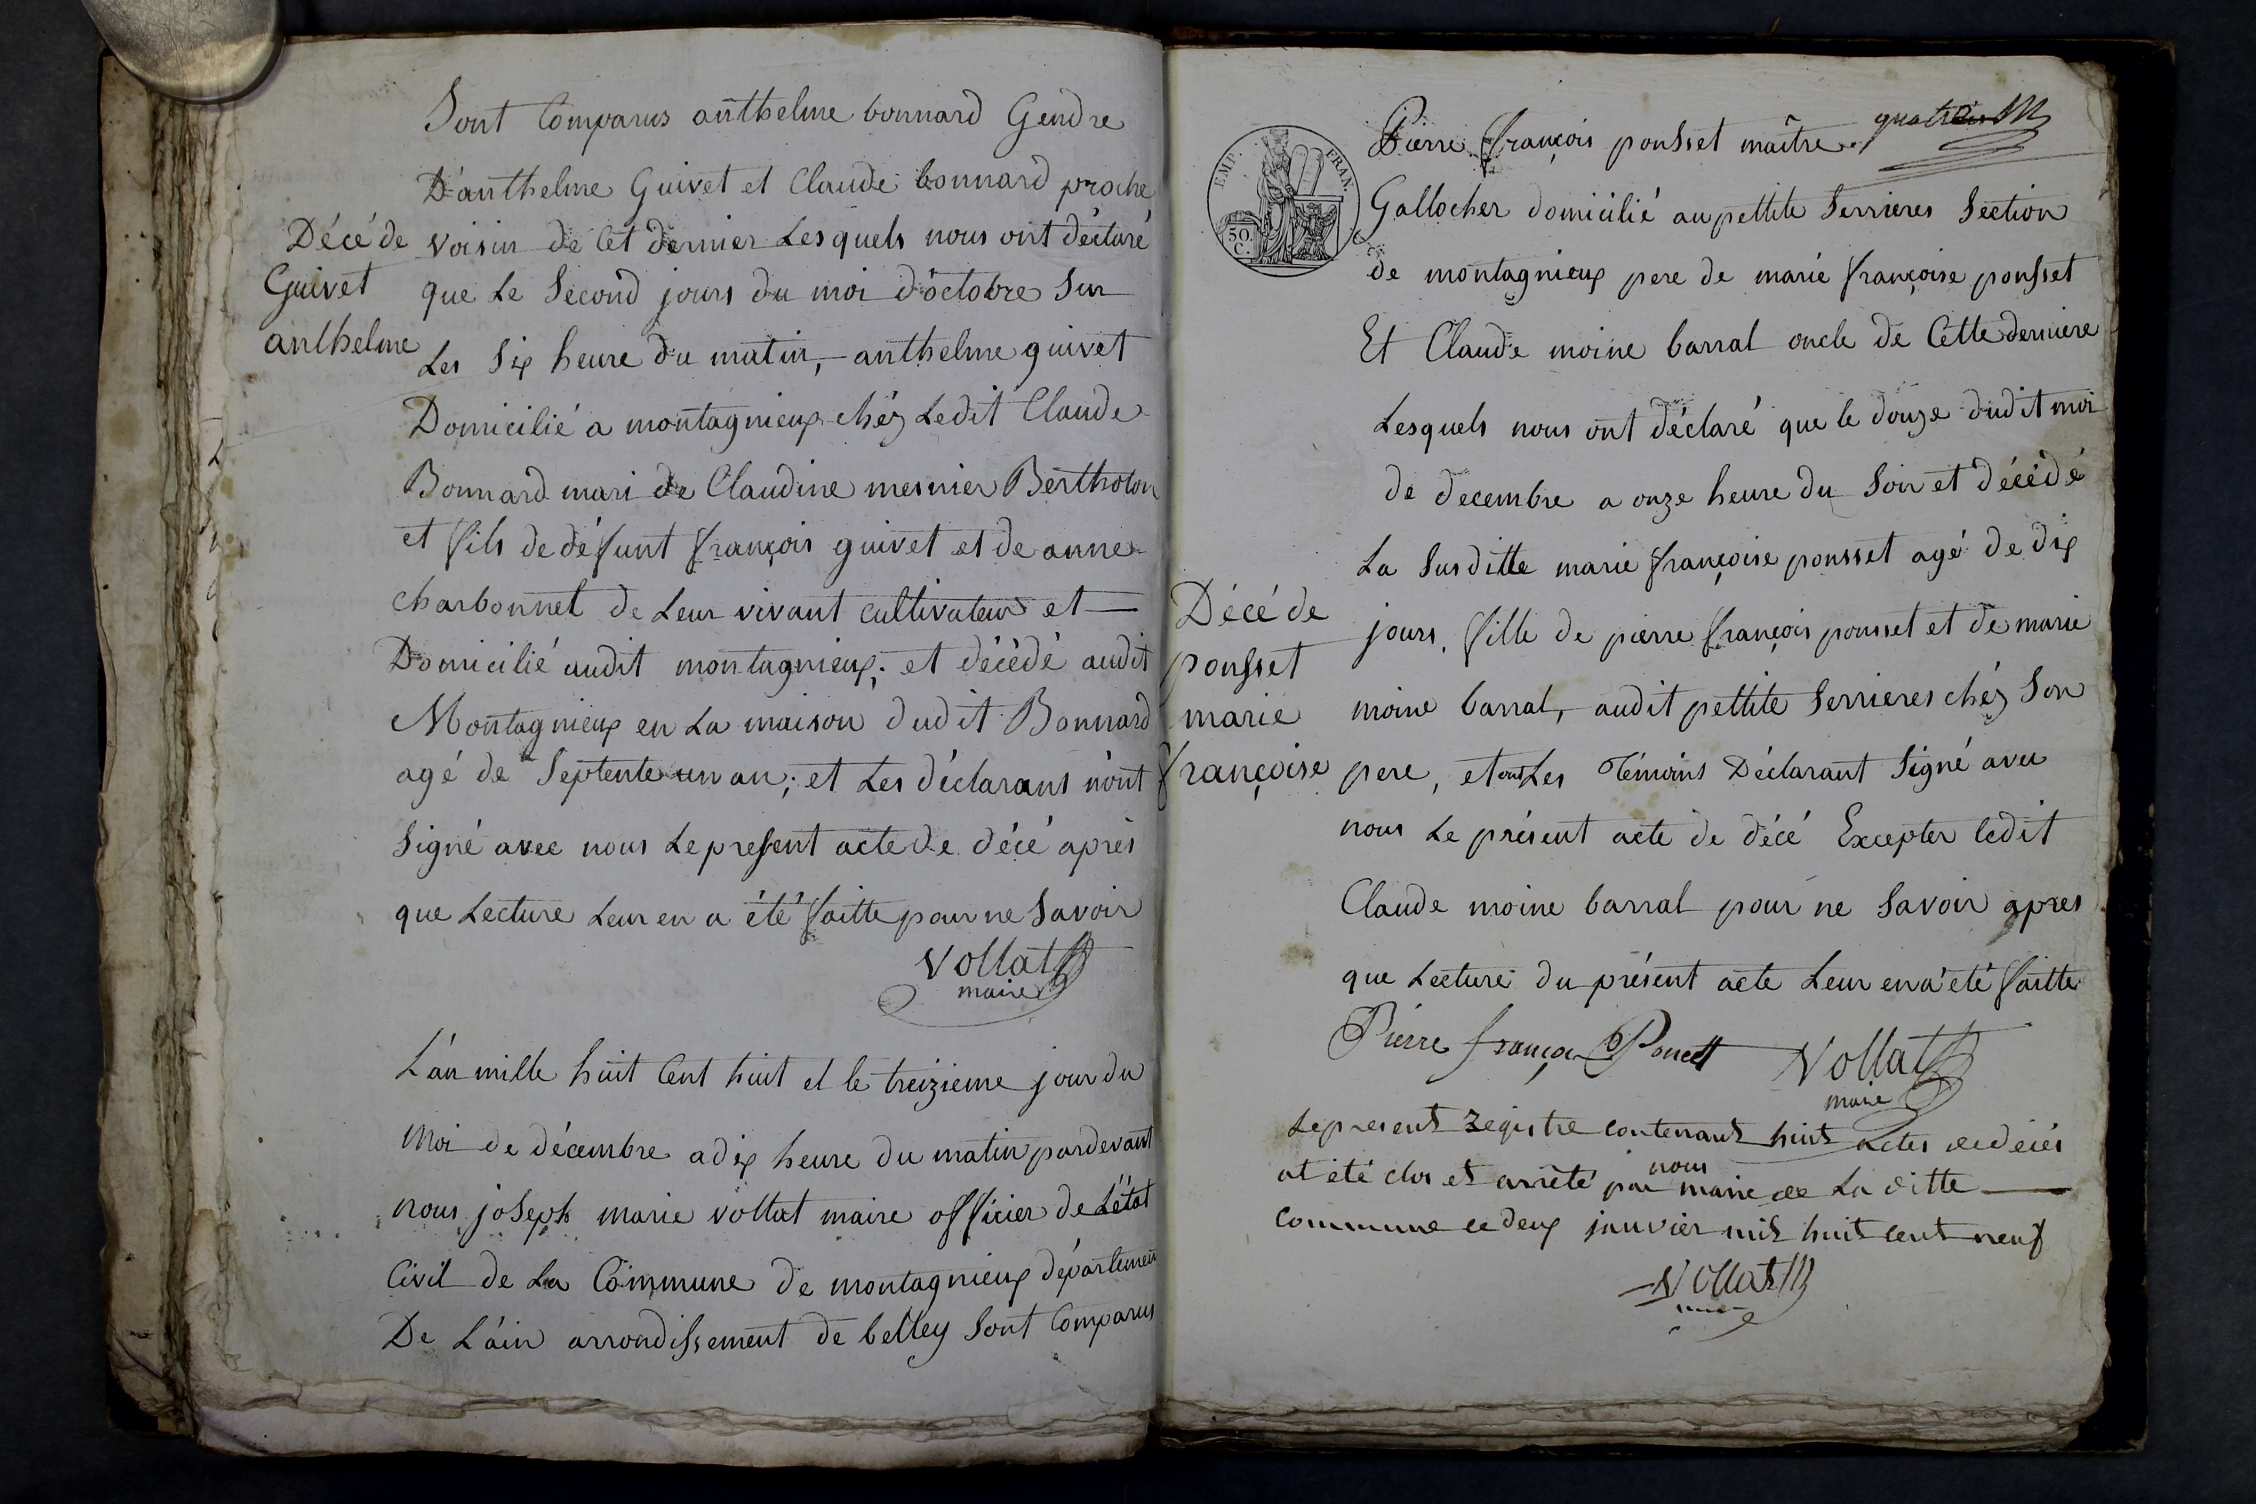 Sont Comparus anthelme bonnard Gendre
D'anthelme Guivet et Claude bonnard proche
voisin de Cet dernier Lesquels nous ont déclaré
que Le Second jours du moi d'octobre Sur
Les Six heure du matin, anthelme guivet
Domicilié a montagnieux chéz Ledit Claude
Bonnard mari de Claudine mesnier Bertholon
et fils de défunt françois guivet et de anne
charbonnet de Leur vivant cultivateur et
Domicilié audit montagnieux; et décédé audit
Montagnieux en La maison dudit Bonnard
agé de Septente un an; et Les déclarans n'ont
Signé avec nous Le present acte de décé après
que Lecture Leur en a été faitte pour ne Savoir
Vollat
maire
Décé de
Guivet
anthelme
L'an mille huit Cent huit et le treizieme jour du
Moi de décembre a dix heure du matin pardevant
nous joseph marie vollat maire officier de L'état
Civil de La Commune de montagnieux département
De L'ain arrondissement de belley Sont Comparus
quatre
EMP. FRAN.
50.
C.
Pierre françois pousset maître
Gallocher domicilié au pettite Serrieres Section
de montagnieux pere de marie françoise pousset
Et Claude moine barral oncle de Cette derniere
Lesquels nous ont déclaré que le douze dudit moi
de decembre a onze heure du Soir et décédé
La Susditte marie françoise pousset agé de dix
jours, fille de pierre françois pousset et de marie
moine barral, audit pettite Serrieres chéz Son
pere, et ont Les Témoins Déclarant Signé avec
nous Le présent acte de décé Excepter ledit
Claude moine barral pour ne Savoir apres
que Lecture du présent acte Leur en a été faitte
Décé de
pousset
marie
françoise
Pierre françoi Poucet Vollat
maire
Le present Registre contenant huit actes de décés
at été clos et arrêté par nous maire de La ditte
Commune le deux janvier mil huit cent neuf
Vollat